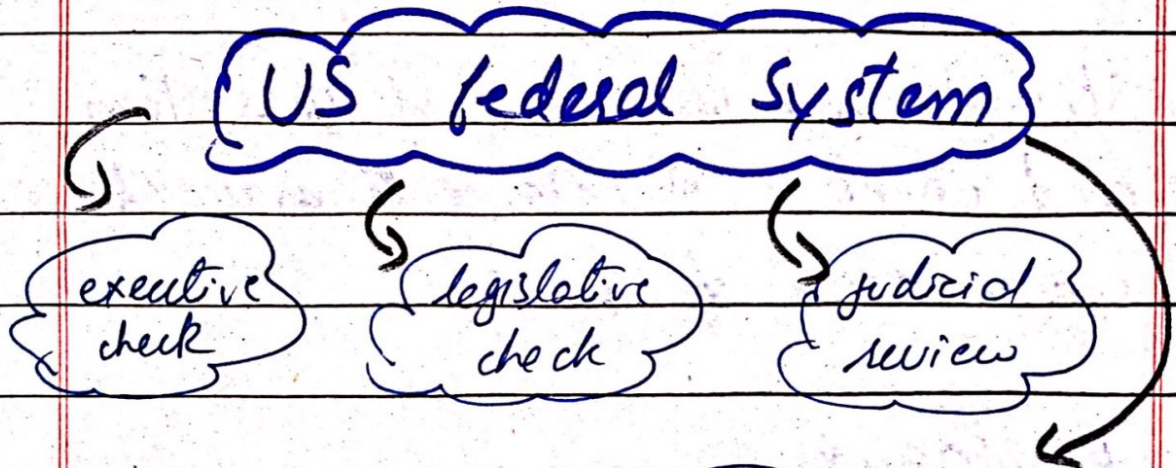 US federal system
executive
check
legislative
check
judicial
review